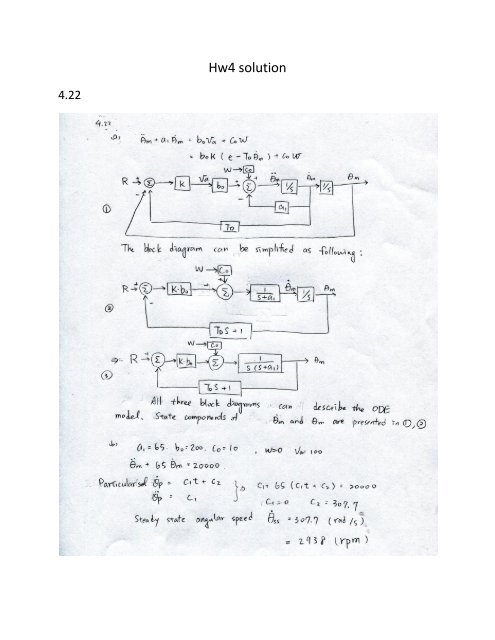 Hw4 solution
4.22
4.22
a)  θ̈m + a₁ θ̇m = b₀Va + C₀W
= b₀K ( e - TD θ̇m ) + C₀W
W → C₀
R + Σ K Va b₀ + Σ + θ̈m 1/s θ̇m 1/s θm
-
-
a₁
①
TD
The block diagram can be simplified as following :
W → C₀
R + Σ K·b₀ Σ 1/(s+a₁) θ̇m 1/s θm
-
②
TD S + 1
W → C₀
⇒ R + Σ K·b₀ Σ 1/(S (S+a₁)) θm
③
TD S + 1
All three block diagrams can describe the ODE
model. State components of θ̇m and θm are presented in ①, ②
b)  a₁ = 65  b₀ = 200  C₀ = 10 , W=0  Va = 100
θ̈m + 65 θ̇m = 20000
Particular sol θ̇p = C₁t + C₂
θ̈p = C₁
} ⇒ C₁ + 65 (C₁t + C₂) = 20000
C₁ = 0  C₂ = 307.7
Steady state angular speed θ̇ss = 307.7 (rad /s)
= 2938 (rpm)